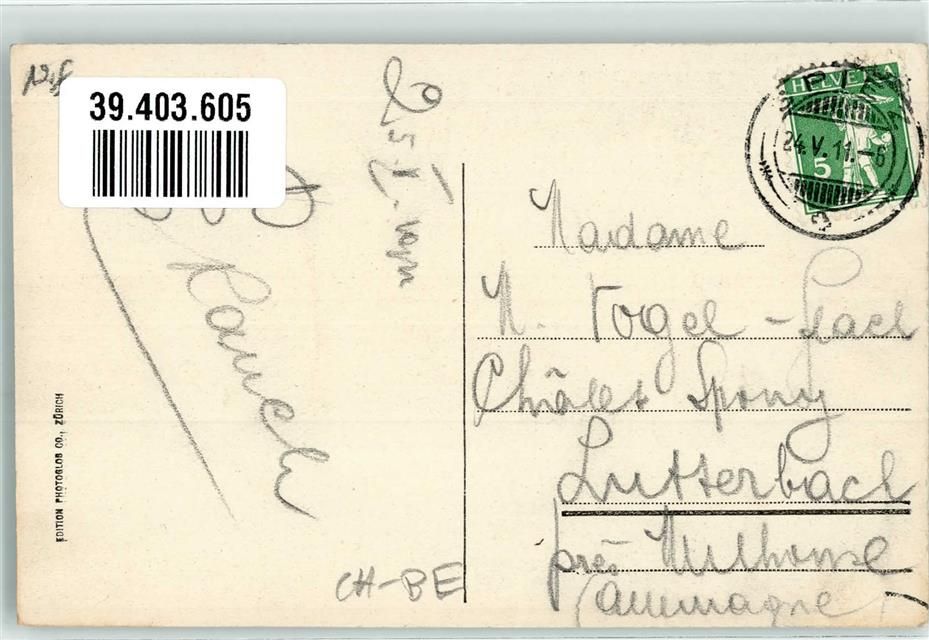 39.403.605
HELVETIA
SPIEZ
24.V.11.-6
5
Madame
M. Vogel -
Châlet Spony
Lutterbach
près Mulhouse
(Allemagne)
EDITION PHOTOGLOB CO., ZÜRICH
CH-BE